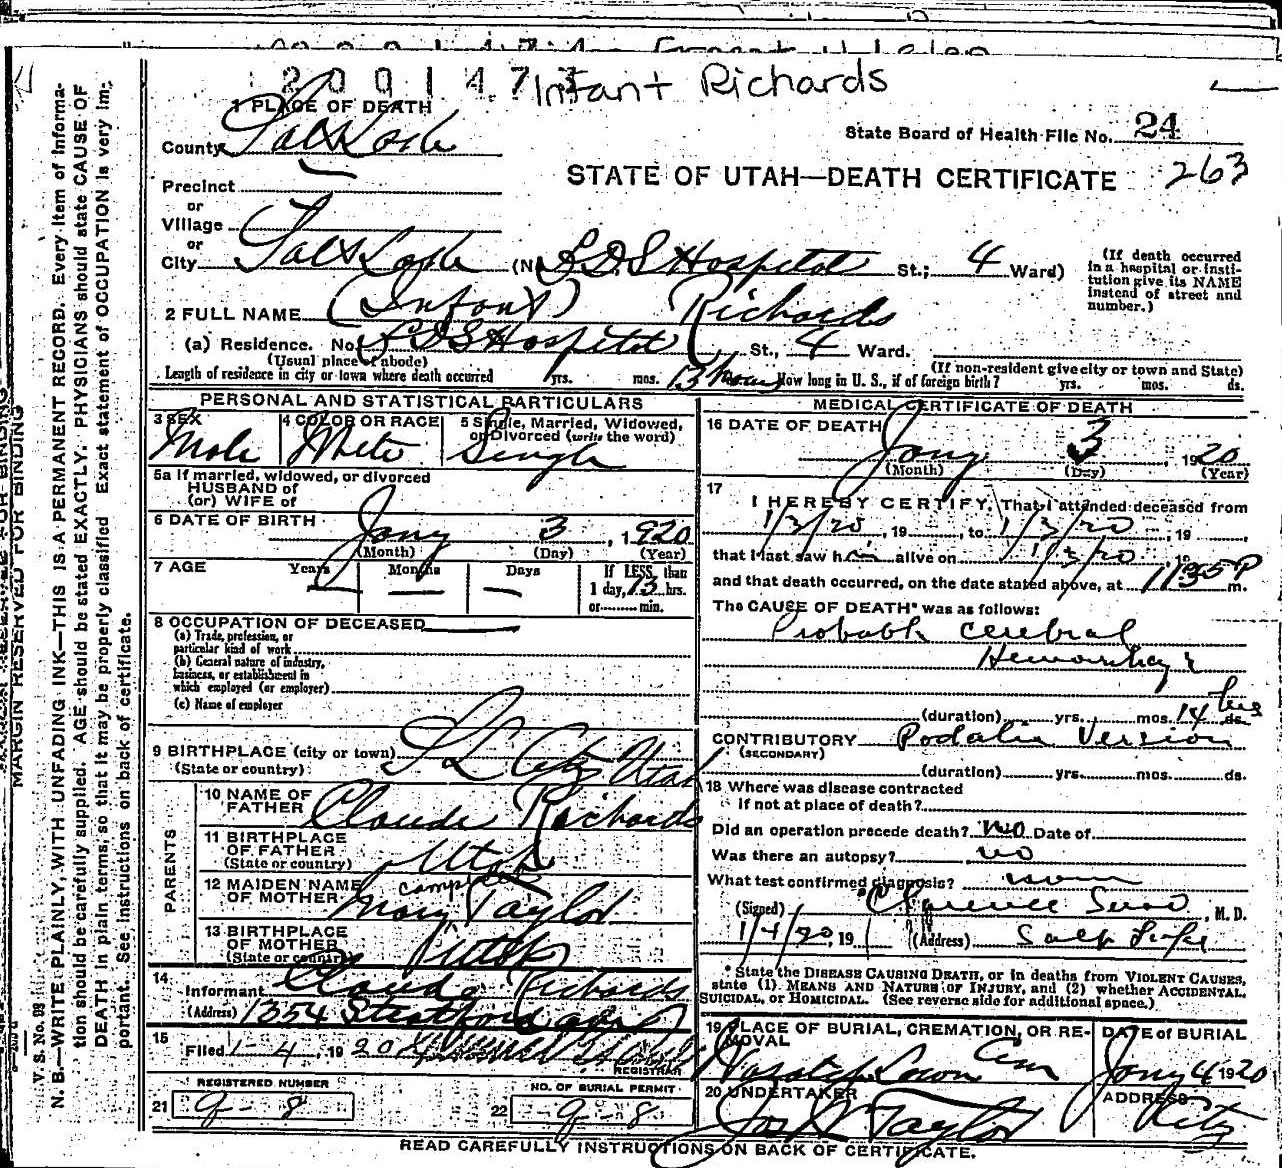 2 0 0 1 4 7
Infant Richards
1 PLACE OF DEATH
State Board of Health File No. 24
County Salt Lake
STATE OF UTAH—DEATH CERTIFICATE 263
Precinct
or
Village
or
City Salt Lake (No. LDS Hospital St.; 4 Ward)
(If death occurred in a hospital or institution give its NAME instead of street and number.)
2 FULL NAME (Infant) Richards
(a) Residence. No. LDS Hospital St., 4 Ward.
(Usual place of abode) (If non-resident give city or town and State)
Length of residence in city or town where death occurred yrs. mos. 13 hours How long in U. S., if of foreign birth? yrs. mos. ds.
PERSONAL AND STATISTICAL PARTICULARS
3 SEX Male
4 COLOR OR RACE White
5 Single, Married, Widowed, or Divorced (write the word) Single
5a If married, widowed, or divorced
HUSBAND of
(or) WIFE of
6 DATE OF BIRTH Jany 3, 1920
(Month) (Day) (Year)
7 AGE Years — Months — Days — If LESS than 1 day, 13 hrs. or min.
8 OCCUPATION OF DECEASED
(a) Trade, profession, or
particular kind of work
(b) General nature of industry,
business, or establishment in
which employed (or employer)
(c) Name of employer
9 BIRTHPLACE (city or town) S L City Utah
(State or country)
PARENTS
10 NAME OF FATHER Claude Richards
11 BIRTHPLACE OF FATHER Utah
(State or country)
12 MAIDEN NAME OF MOTHER Mary Taylor
13 BIRTHPLACE OF MOTHER Utah
(State or country)
14 Informant Claude Richards
(Address) 1354 Stratford
15 Filed 1-4, 1920
REGISTRAR
REGISTERED NUMBER
21 9-8
NO. OF BURIAL PERMIT
22 9-8
MEDICAL CERTIFICATE OF DEATH
16 DATE OF DEATH Jany 3, 1920
(Month) (Day) (Year)
17 I HEREBY CERTIFY, That I attended deceased from
1/3/20, 19 , to 1/3/20, 19 ,
that I last saw him alive on 1/3/20 19
and that death occurred, on the date stated above, at 1135 P m.
The CAUSE OF DEATH* was as follows:
Probable cerebral
Hemorrhage
(duration) yrs. mos. 14 hrs ds.
CONTRIBUTORY Podalic Version
(SECONDARY)
(duration) yrs. mos. ds.
18 Where was disease contracted
if not at place of death?
Did an operation precede death? no Date of
Was there an autopsy? no
What test confirmed diagnosis?
(Signed) Clarence , M. D.
1/4/20, 19 (Address) Salt Lake
* State the DISEASE CAUSING DEATH, or in deaths from VIOLENT CAUSES,
state (1) MEANS AND NATURE OF INJURY, and (2) whether ACCIDENTAL,
SUICIDAL, or HOMICIDAL. (See reverse side for additional space.)
19 PLACE OF BURIAL, CREMATION, OR REMOVAL Wasatch Lawn Cem
DATE of BURIAL Jany 4 1920
20 UNDERTAKER Taylor
ADDRESS City
READ CAREFULLY INSTRUCTIONS ON BACK OF CERTIFICATE.
MARGIN RESERVED FOR BINDING
V. S. No. 98
N. B.—WRITE PLAINLY, WITH UNFADING INK—THIS IS A PERMANENT RECORD. Every item of information should be carefully supplied. AGE should be stated EXACTLY. PHYSICIANS should state CAUSE OF DEATH in plain terms, so that it may be properly classified. Exact statement of OCCUPATION is very important. See instructions on back of certificate.